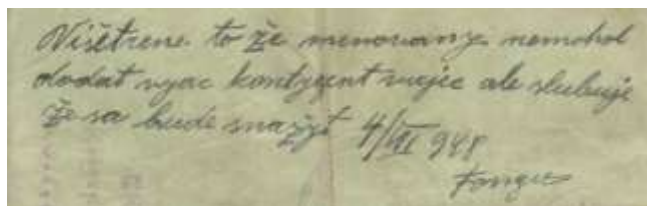 Višetrene to že menovany nemohol
dodat vyac kontygent vajec ale slubuje
že sa bude snažyt 4/VI 948